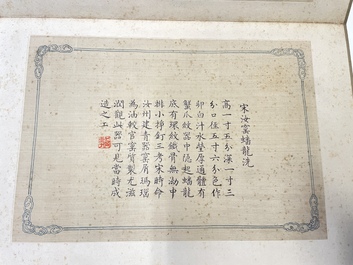 宋汝窯蟠龍洗
高一寸五分深一寸三
分口徑五寸六分色作
卵白汁水瑩厚通體有
蟹爪紋器中隱起蟠龍
底有環紋鐵骨無泑中
排小掙釘三考宋時命
汝州建青器窯屑瑪瑙
為油較官窯質製尤滋
潤觀此器可見當時成
造之工